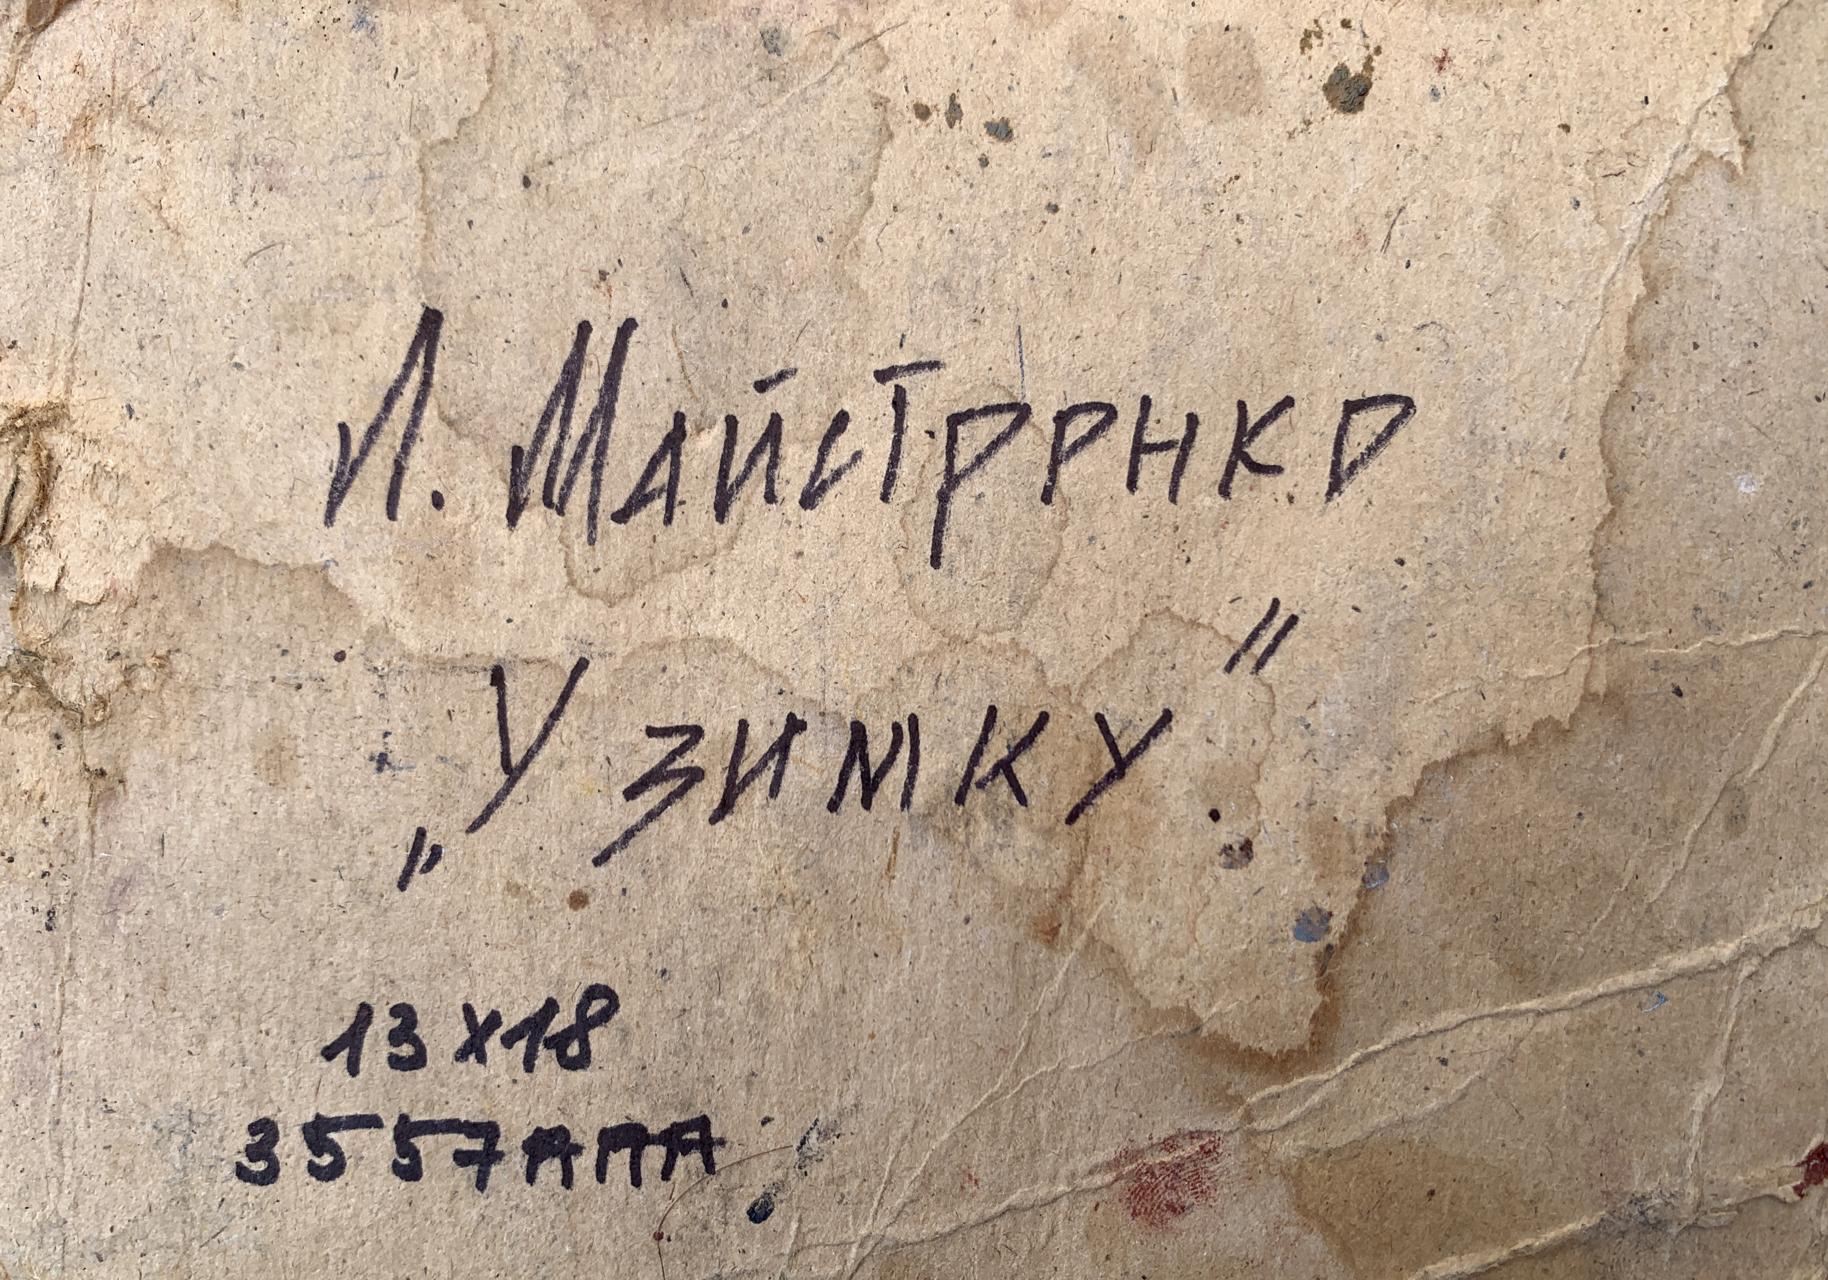 Л. Майстренко
„У зимку."
13x18
3557AAA